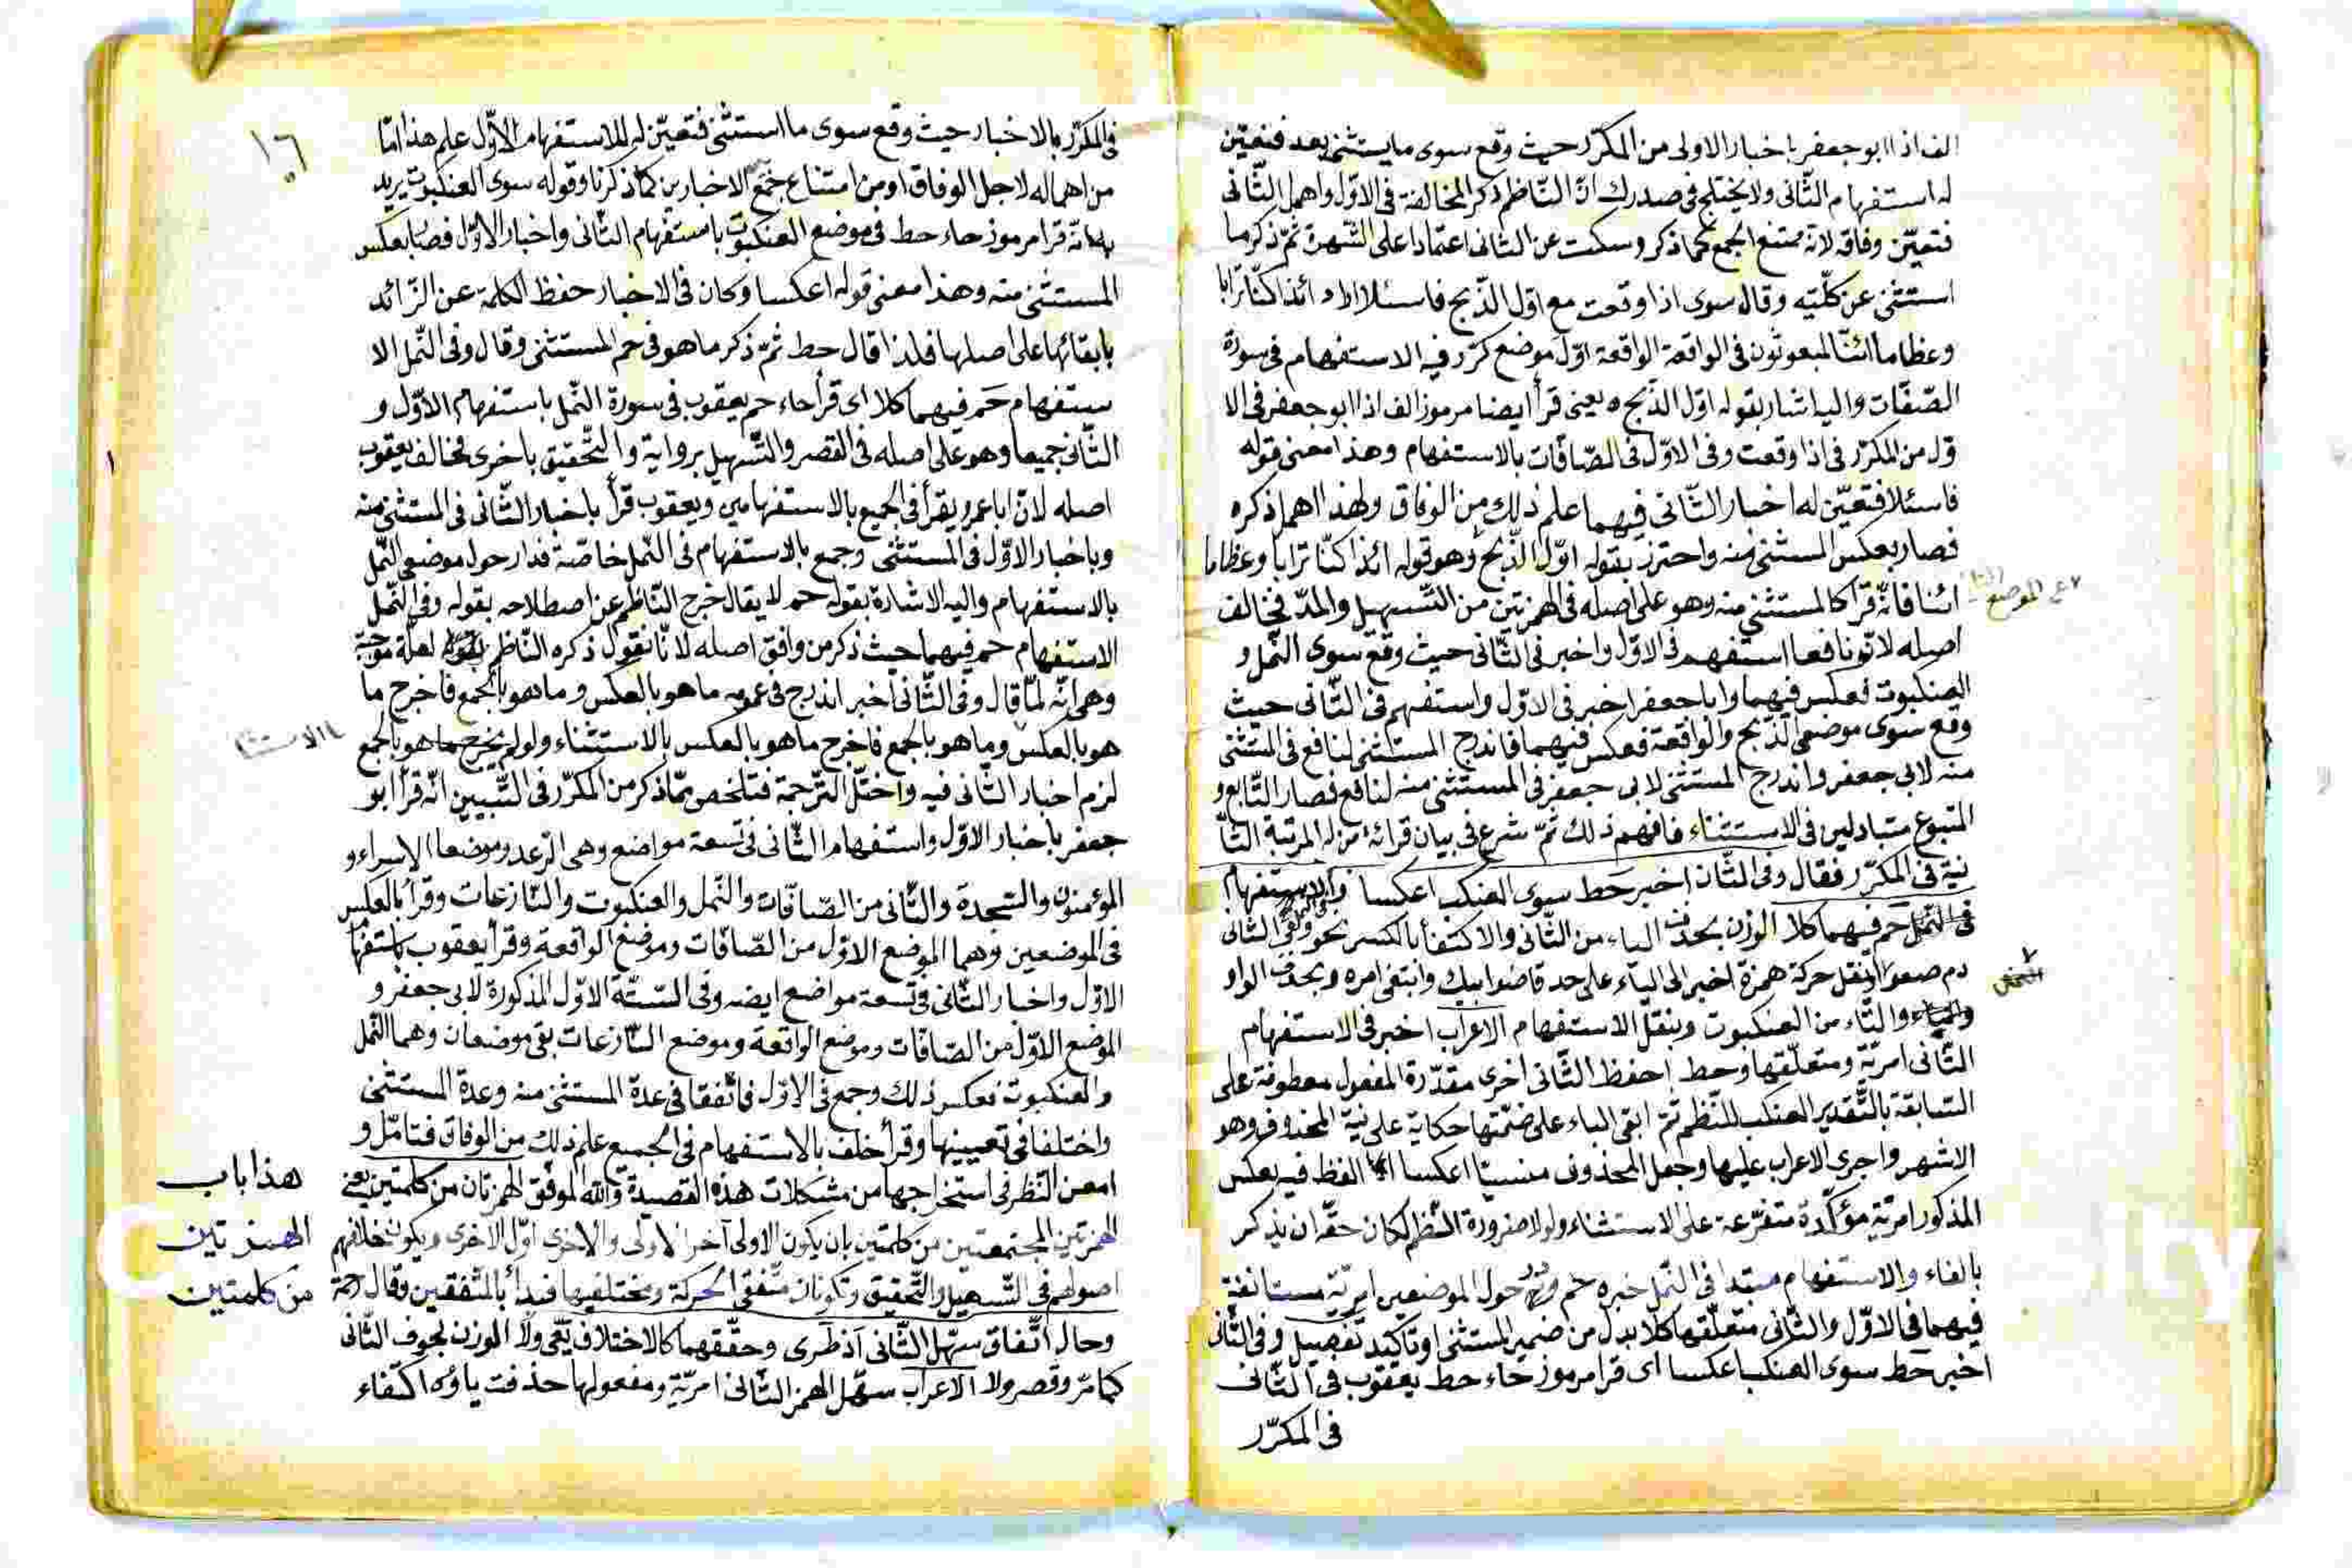 الف اذا ابو جعفر باخبار الاولى من المكرّر حيث وقع سوى ما يستثنى بعد فتعيّن
له استفهام الثّانى ولا يختلج فى صدرك انّ النّاظم ذكر المخالفة فى الاوّل واهمل الثّانى
فتعيّن وفاقه لانّه ممتنع الجمع كما ذكر وسكت عن الثانى اعتمادا على الشّهرة ثمّ ذكر ما
استثنى عن كلّيته وقال سوى اذا وقعت مع اوّل الذّبح فاسئلا اى ائذا كنّا ترابا
وعظاما ائنّا لمبعوثون فى الواقعة الواقعة اوّل موضع كرّر فيه الاستفهام فى سورة
الصّفّات واليه اشار بقوله اوّل الذّبح يعنى قرأ ايضا مرموز الف اذا ابو جعفر فى الا
وّل من المكرّر فى اذا وقعت وفى الاوّل فى الصّافّات بالاستفهام وهذا معنى قوله
فاسئلا فتعيّن له اخبار الثّانى فيهما علم ذلك من الوفاق ولهذا اهمل ذكره
فصار بعكس المستثنى منه واحترز بقوله اوّل الذّبح وهو قوله ائذا كنّا ترابا وعظاما
ائنا فانّه قرأ كالمستثنى منه وهو على اصله فى الهمزتين من التّسهيل والمدّ فخالف
اصله لانّ نافعا استفهم فى الاوّل واخبر فى الثّانى حيث وقع سوى النّمل و
العنكبوت فعكس فيهما وابا جعفر اخبر فى الاوّل واستفهم فى الثّانى حيث
وقع سوى موضعى الذّبح والواقعة فعكس فيهما فاندرج المستثنى لنافع فى المستثنى
منه لابى جعفر واندرج المستثنى لابى جعفر فى المستثنى منه لنافع فصار التّابع و
المتبوع متبادلين فى الاستثناء فافهم ذلك ثمّ شرع فى بيان قرائة من له المرتبة الثّا
نية فى المكرّر فقال وفى الثّان اخبر حط سوى العنكب اعكسا والاستفهام
فى النّمل حم فيهما كلا الوزن بحذف الياء من الثّانى والاكتفاء بالكسر نحو
دم صعوا وبنقل حركة همزة اخبر الى الياء على حد قاضوا بيك وانتفى امره وبحذف الواو
والياء والتّاء من العنكبوت وبنقل الاستفهام الاعراب اخبر فى الاستفهام
الثّانى امريّة ومتعلّقها وحط احفظ الثّانى اخرى مقدّرة المفعول معطوفة على
السّابقة بالتّقدير العنكب للنّظم ثمّ ابقى الباء على ضمّتها حكاية على نيّة المحذوف وهو
الاشهر واجرى الاعراب عليها وجعل المحذوف منسيّا اعكسا الفظ فيه بعكس
المذكور امريّة مؤكّدة متفرّعة على الاستثناء ولولا ضرورة النّظم لكان حقّه ان يذكر
بالفاء والاستفهام مبتدا فى النّمل خبره حم حول الموضعين امريّة مستانفة
فيهما فى الاوّل والثّانى متعلّقها كلا بدل من ضمير المستثنى او تاكيد تفصيل وفى الثّانى
اخبر حط سوى العنكب اعكسا اى قرأ مرموز حاء حط يعقوب فى الثّانى
فى المكرّر
الموضع
١٦
فى المكرّر بالاخبار حيث وقع سوى ما استثنى فتعيّن له للاستفهام الاوّل علم هذا امّا
من اهماله لاجل الوفاق او من امتناع جمع الاخبارين كما ذكرنا وقوله سوى العنكبوت يريد
به انّه قرأ مرموز حاء حط فى موضع العنكبوت باستفهام الثانى واخبار الاوّل فصار بعكس
المستثنى منه وهذا معنى قوله اعكسا وكان فى الاخبار حفظ الكلمة عن الزّائد
بابقائها على اصلها فلذا قال حط ثمّ ذكر ما هو فى حم المستثنى وقال وفى النّمل الا
ستفهام حم فيهما كلا اى قرأ حاء حم يعقوب فى سورة النّمل باستفهام الاوّل و
الثّانى جميعا وهو على اصله فى القصر والتّسهيل برواية والتّحقيق باخرى فخالف يعقوب
اصله لانّ ابا عمرو يقرأ فى الجميع بالاستفهامين ويعقوب قرأ باخبار الثّانى فى المستثنى منه
وباخبار الاوّل فى المستثنى وجمع بالاستفهام فى النّمل خاصّة فدار حول موضعى النّمل
بالاستفهام واليه الاشارة بقوله حم لا يقال خرج النّاظم عن اصطلاحه بقوله وفى النّمل
الاستفهام حم فيهما حيث ذكر من وافق اصله لانّا نقول ذكره النّاظم لعلّة موجبة
وهى انّه لمّا قال وفى الثّانى اخبر اندرج فى عمومه ما هو بالعكس وما هو بالجمع فاخرج ما
هو بالعكس وما هو بالجمع فاخرج ما هو بالعكس بالاستثناء ولو لم يخرج ما هو بالجمع
لزم اخبار الثّانى فيه واختلّ التّرجمة فتلخص ممّا ذكر من المكرّر فى التّبيين انّه قرأ ابو
جعفر باخبار الاوّل واستفهام الثّانى فى تسعة مواضع وهى الرّعد وموضعا الاسراء و
المؤمنون والسّجدة والثّانى من الصّافّات والنّمل والعنكبوت والنّازعات وقرأ بالعكس
فى الموضعين وهما الموضع الاوّل من الصّافّات وموضع الواقعة وقرأ يعقوب باستفهام
الاوّل واخبار الثّانى فى تسعة مواضع ايضه وفى السّتّة الاوّل المذكورة لابى جعفر و
الموضع الاوّل من الصّافّات وموضع الواقعة وموضع النّازعات بقى موضعان وهما النّمل
والعنكبوت فعكس ذلك وجمع فى الاوّل فاتّفقا فى عدّة المستثنى منه وعدة المستثنى
واختلفا فى تعيينها وقرأ خلف بالاستفهام فى الجميع علم ذلك من الوفاق فتامّل و
امعن النّظر فى استخراجها من مشكلات هذه القصيدة والله الموفق الهمزتان من كلمتين يعنى
الهمزتين المجتمعتين من كلمتين بان يكون الاولى آخر الاولى والاخرى اوّل الاخرى ويكون خلافهم
اصولهم فى التّسهيل والتّحقيق وتكونان متّفقى الحركة ومختلفيها فبدأ بالمتّفقين وقال رحمة
وحال اتّفاق سهّل الثّانى اذ طرى وحقّقهما كالاختلاف يعى ولا الوزن بحذف الثّانى
كما مرّ وقصر ولا الاعراب سهّل الهمز الثّانى امريّة ومفعولها حذفت ياؤه اكتفاء
الاستثنا
هذا باب
الهمزتين
من كلمتين